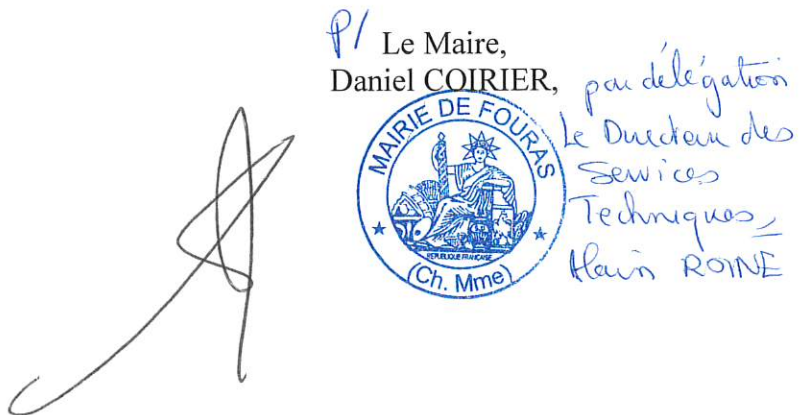 P/ Le Maire,
Daniel COIRIER,
par délégation
Le Directeur des
Services
Techniques,
Alain ROINÉ
MAIRIE DE FOURAS
REPUBLIQUE FRANCAISE
(Ch. Mme)